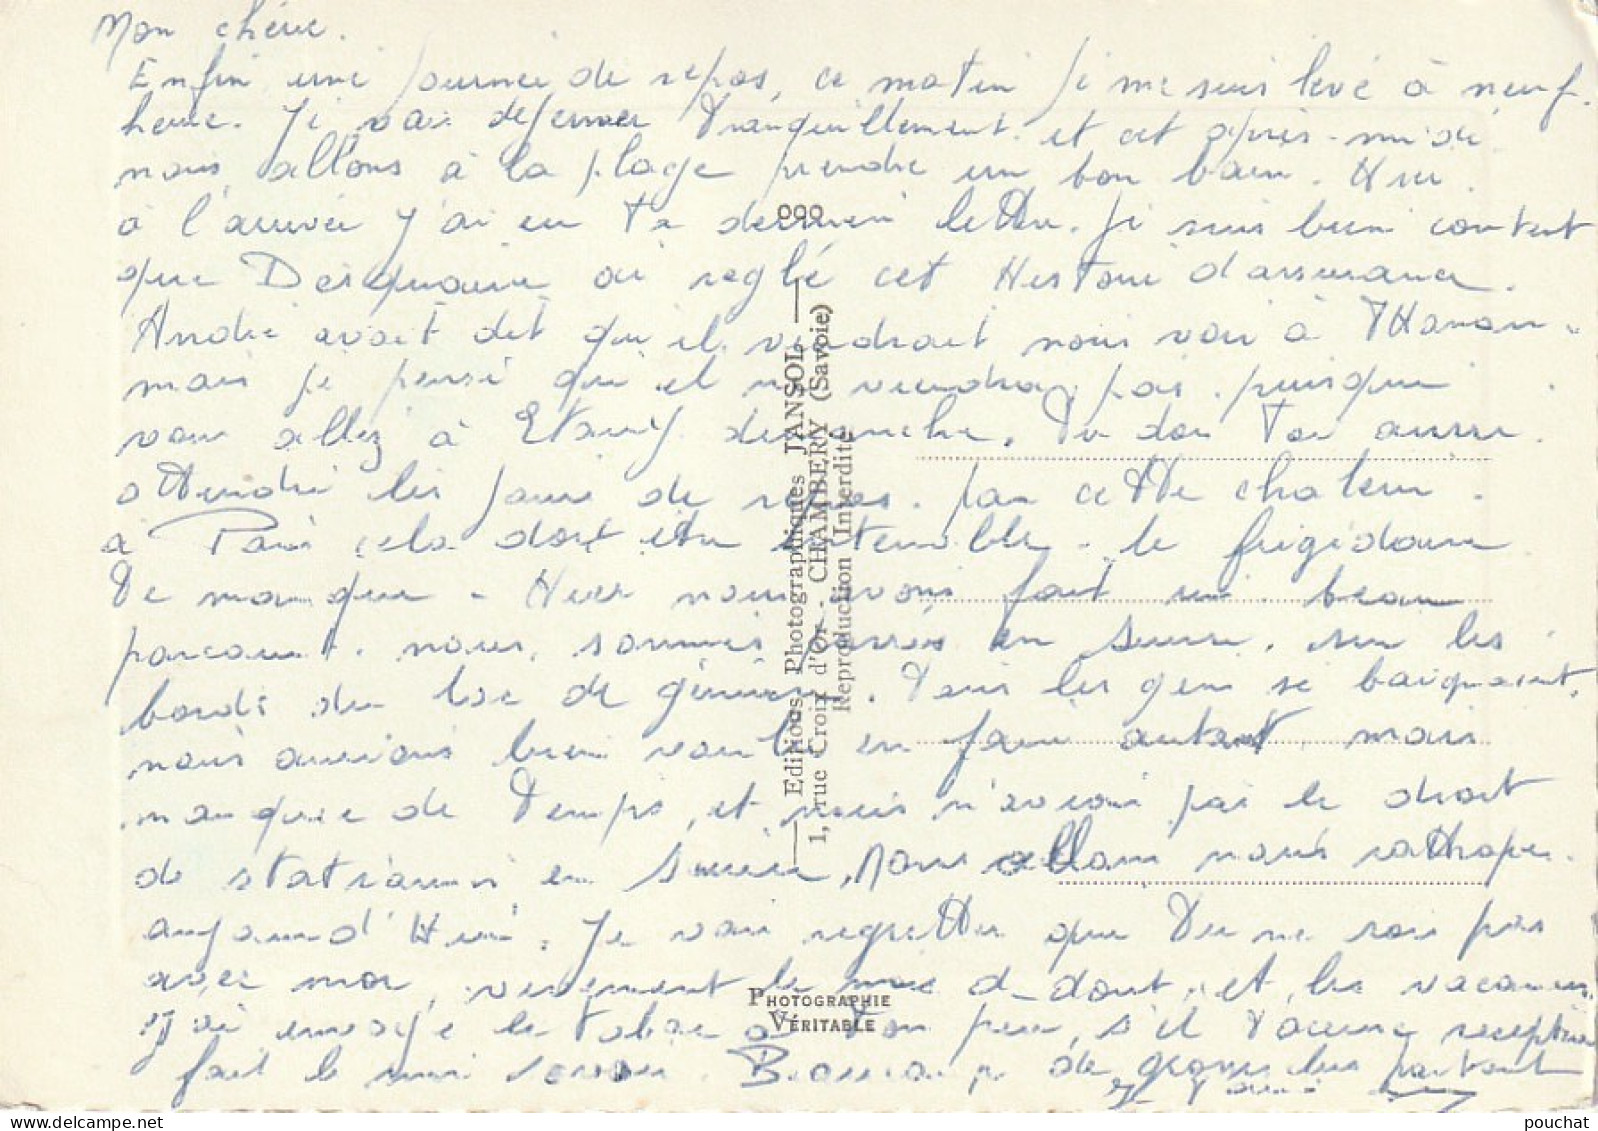 Mon chérie.
Enfin une journée de repos, ce matin je me suis levé à neuf
heure. Je vais déjeuner tranquillement et cet après-midi
nous allons à la plage prendre un bon bain. Hier
à l'arrivée j'ai eu ta dernière lettre. Je suis bien content
que ai reglé cet Histoire d'assurance.
André avait dit qu'il viendrait nous voir à THonon
mais je pense qu'il ne viendra pas puisque
vous allez à dimanche. Tu dois Toi aussi
attendre les jours de repos. par cette chaleur.
à Paris cela doit être terrible. le frigidaire
Te manque - Hier nous avons fait un beau
parcourt. nous sommes passés en Suisse, sur les
bords du lac de génève. Tous les gens se baignaient,
nous aurions bien voulu en faire autant mais
manque de Temps, et nous n'avions pas le droit
de en Suisse, Nous allons nous rattraper
aujourd'Hui. Je vais regretter que Tu ne sois pas
avec moi, vivement le mois d'-dout, et les vacances.
J'ai envoyé le Tabac à Ton père, s'il reception
fait le moi savoir. Beaucoup de grosses bises partout
ooo
Editions Photographiques JANSOL
1, rue Croix d'Or - CHAMBERY (Savoie)
Reproduction Interdite
PHOTOGRAPHIE
VÉRITABLE
pouchat